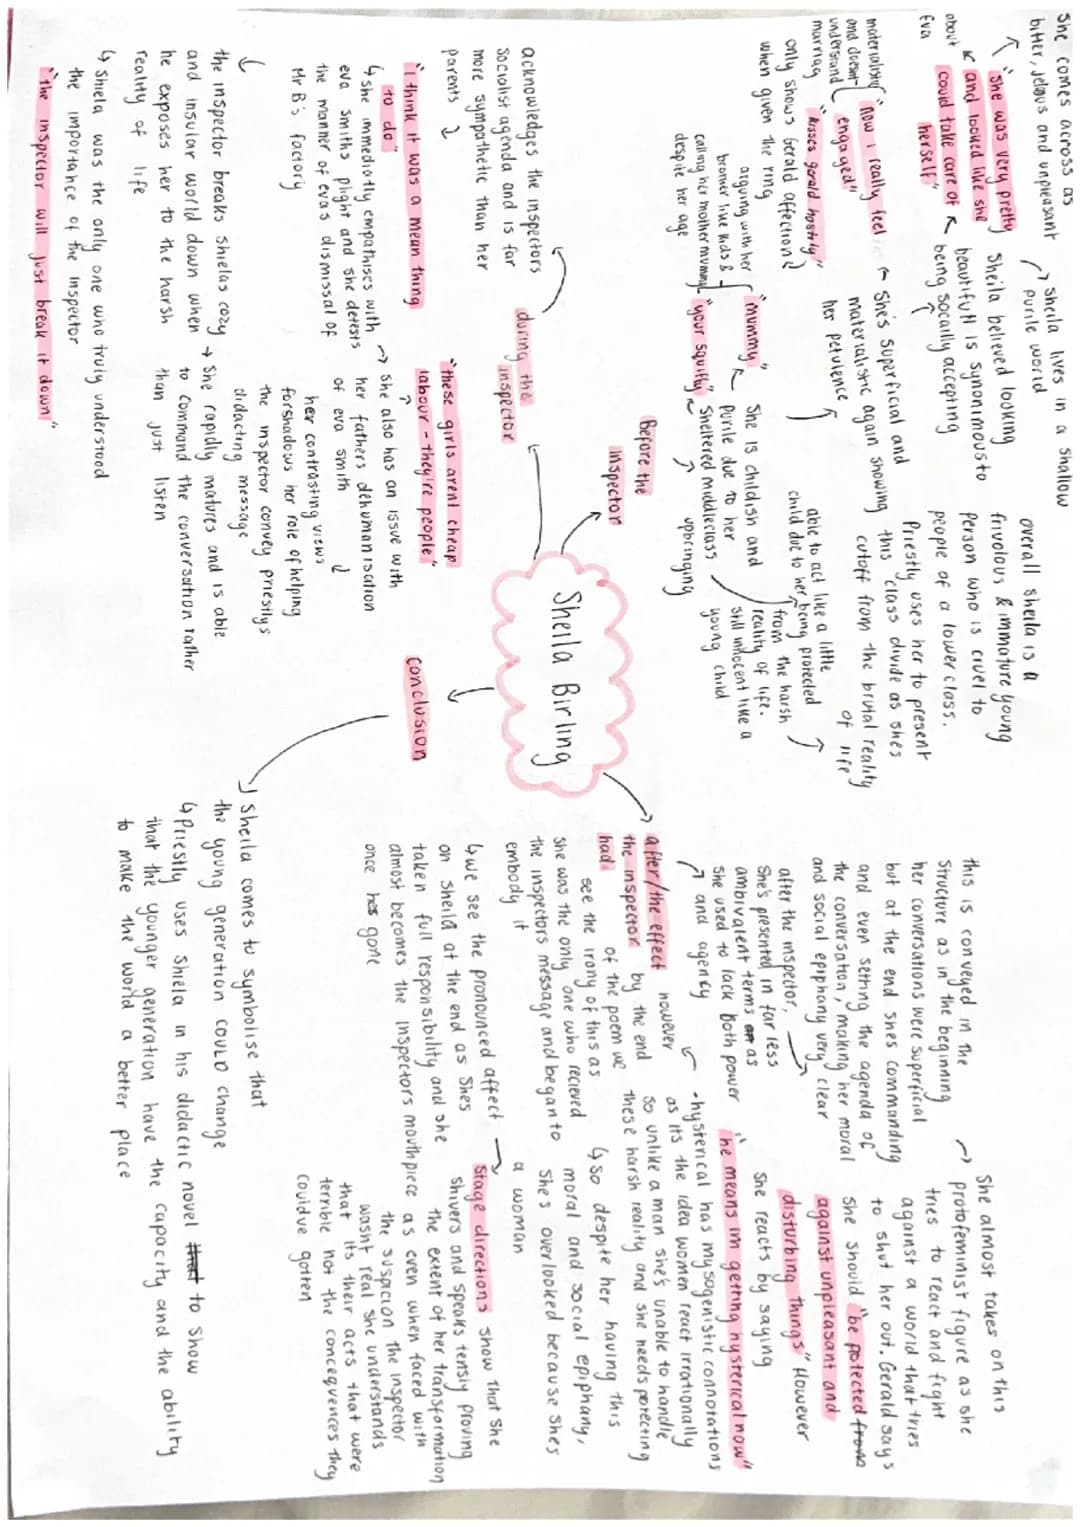 Sheila Birling
Before the
inspector
She comes across as
bitter, jelous and unpleasant
"she was very pretty
and looked like she
could take care of
herself"
about
Eva
Sheila lives in a shallow
Purile world
Sheila believed looking
beautifull is synonimous to
being socailly accepting
materialistic
and doesnt
understand
marriag
"now i really feel
engaged"
"kisses gerald hastily"
only shows Gerald affection
when given the ring
She's superficial and
materialistic again showing
her petulence
"mummy"
"your squiffy"
arguing with her
brother like kids &
calling her mother mummy
despite her age
She is childish and
purile due to her
Sheltered middleclass
upbringing
able to act like a little
child due to her being protected
from the harsh
reality of life.
still innocent like a
young child
overall sheila is a
frivolous & immature young
Person who is cruel to
people of a lower class.
Priestly uses her to present
this class divide as shes
cutoff from the brutal reality
of life
during the
inspector
acknowledges the inspectors
Socialist agenda and is far
more sympathetic than her
parents
"I think it was a mean thing
to do"
↳ she immediotly empathises with
eva smiths plight and she detests
the manner of evas dismissal of
Mr B's factory
the inspector breaks Shielas cozy
and insular world down when
he exposes her to the harsh
reality of life
↳ Shiela was the only one who truly understood
the importance of the inspector
"the inspector will just break it down"
"these girls arent cheap
labour - they're people"
→ she also has an issue with
her fathers dehumanisation
of eva smith
her contrasting views
forshadows her role of helping
the inspector convey priestlys
didacting message
→ She rapidly matures and is able
to command the conversation rather
than just listen
conclusion
Sheila comes to symbolise that
the young generation COULD change
↳ Priestly uses Shiela in his didactic novel to show
that the younger generation have the capacity and the ability
to make the world a better place
after/the effect
the inspector
had.
however
by the end
of the poem we
see the irony of this as
she was the only one who recieved
the inspectors message and began to
embody it
↳ we see the pronounced affect
on sheila at the end as shes
taken full responsibility and she
almost becomes the inspectors mouthpiece
once has gone
this is conveyed in the
structure as in the beginning
her conversations were superficial
but at the end shes commanding
and even setting the agenda of
the conversation, making her moral
and social epiphany very clear
after the inspector,
she's presented in far less
ambivalent terms as
she used to lack both power
and agency
→ She almost takes on this
protofeminist figure as she
tries to react and fight
against a world that tries
to shut her out. Gerald says
she should "be protected
against unpleasant and
disturbing things" However
she reacts by saying
"he means im getting hysterical now"
-hysterical has mysogenistic connotations
as its the idea women react irrationally
so unlike a man she's unable to handle
these harsh reality and she needs protecting
↳ so despite her having this
moral and social epiphany,
She's overlooked because shes
a woman
Stage directions show that she
shivers and speaks tensly proving
the extent of her transformation
as even when faced with
the suspicion the inspector
wasnt real she understands
that its their acts that were
terrible not the concequences they
couldve gotten